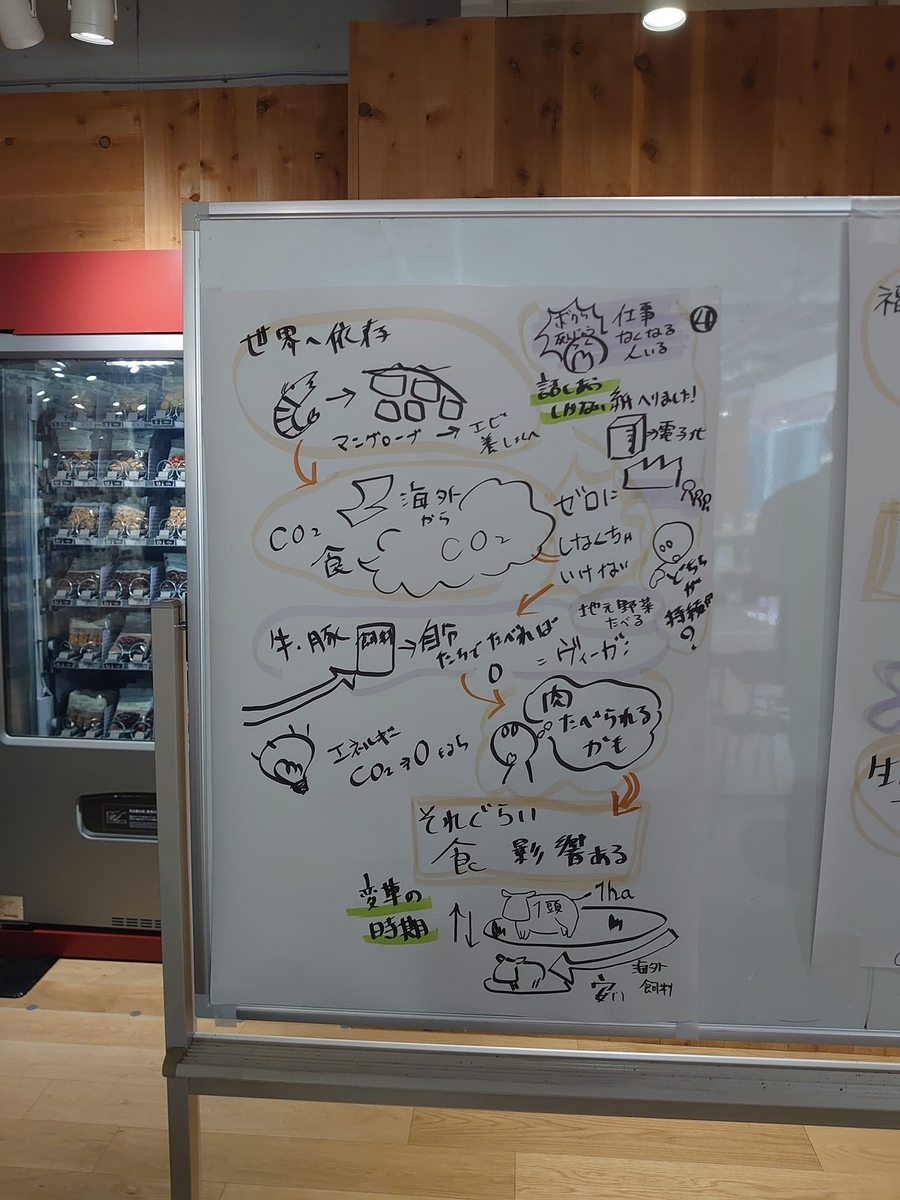 世界へ依存
マングローブ → エビ
養しょくへ
CO₂
海外
から
食
CO₂
ゼロに
しなくちゃ
いけない
仕事
なくなる
人いる
④
話しあう
しかない
紙へりました!
→電子化
どちら
が
持続的
?
地元野菜
たべる
牛・豚
飼料
→自分
たちで たべれば
0
=ヴィーガン
肉
たべられる
かも
エネルギー
CO₂
0なら
それぐらい
食 影響ある
変革の
時期
1ha
1頭
海外
飼料
安い
福
生